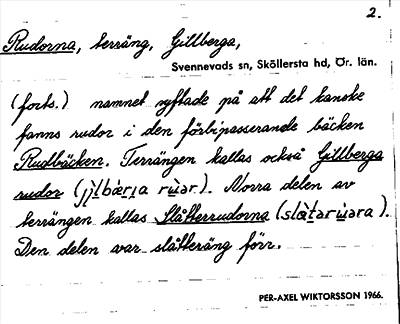 2.
Rudorna, terräng, Gillberga,
Svennevads sn, Sköllersta hd, Ör. län.
(forts.) namnet syftade på att det kanske
fanns rudor i den förbipasserande bäcken
Rudbäcken. Terrängen kallas också Gillberga
rudor (jı̀lbæ̀rɪa rùar). Norra delen av
terrängen kallas Slåtterrudorna (slàtarùara).
Den delen var slåtteräng förr.
PER-AXEL WIKTORSSON 1966.